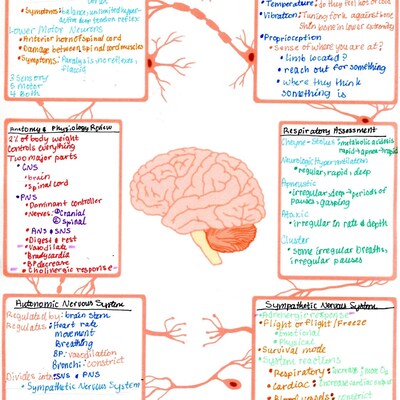 Symptoms: balance, unlimited hyper-
active deep tendon reflex
Lower Motor Neurons
Anterior horn of spinal cord
Damage between spinal cord muscles
Symptoms: Paralysis no reflexes,
flaccid
3 Sensory
5 Motor
4 Both
Temperature: do they feel hot or cold
Vibration: Tuning fork against bone
Shin bone in lower extremity
Proprioception
Sense of where you are at?
limb located?
reach out for something
where they think
something is
Anatomy & Physiology Review
2% of body weight
Controls everything
Two major parts
CNS
brain
spinal cord
PNS
Dominant controller
Nerves: Cranial
Spinal
ANS SNS
Digest & rest
Vasodilate
Bradycardia
BP decrease
Cholinergic response
Respiratory Assessment
Cheyne-Stokes: metabolic acidosis
rapid→apnea→rapid
Neurologic Hyperventilation
regular, rapid, deep
Apneustic
irregular, deep → periods of
pauses, gasping
Ataxic
irregular in rate & depth
Cluster
some irregular breaths,
irregular pauses
Autonomic Nervous System
Regulated by: brain stem
Regulates: Heart rate
Movement
Breathing
BP: vasodilation
Bronchi: constrict
Divides into: SNS & PNS
Sympathetic Nervous System
Sympathetic Nervous System
Adrenergic response
Flight or Flight/Freeze
Emotional
Physical
Survival mode
System reactions
Respiratory: increase rate, O2
Cardiac: Increase cardiac output
Blood vessels: constrict